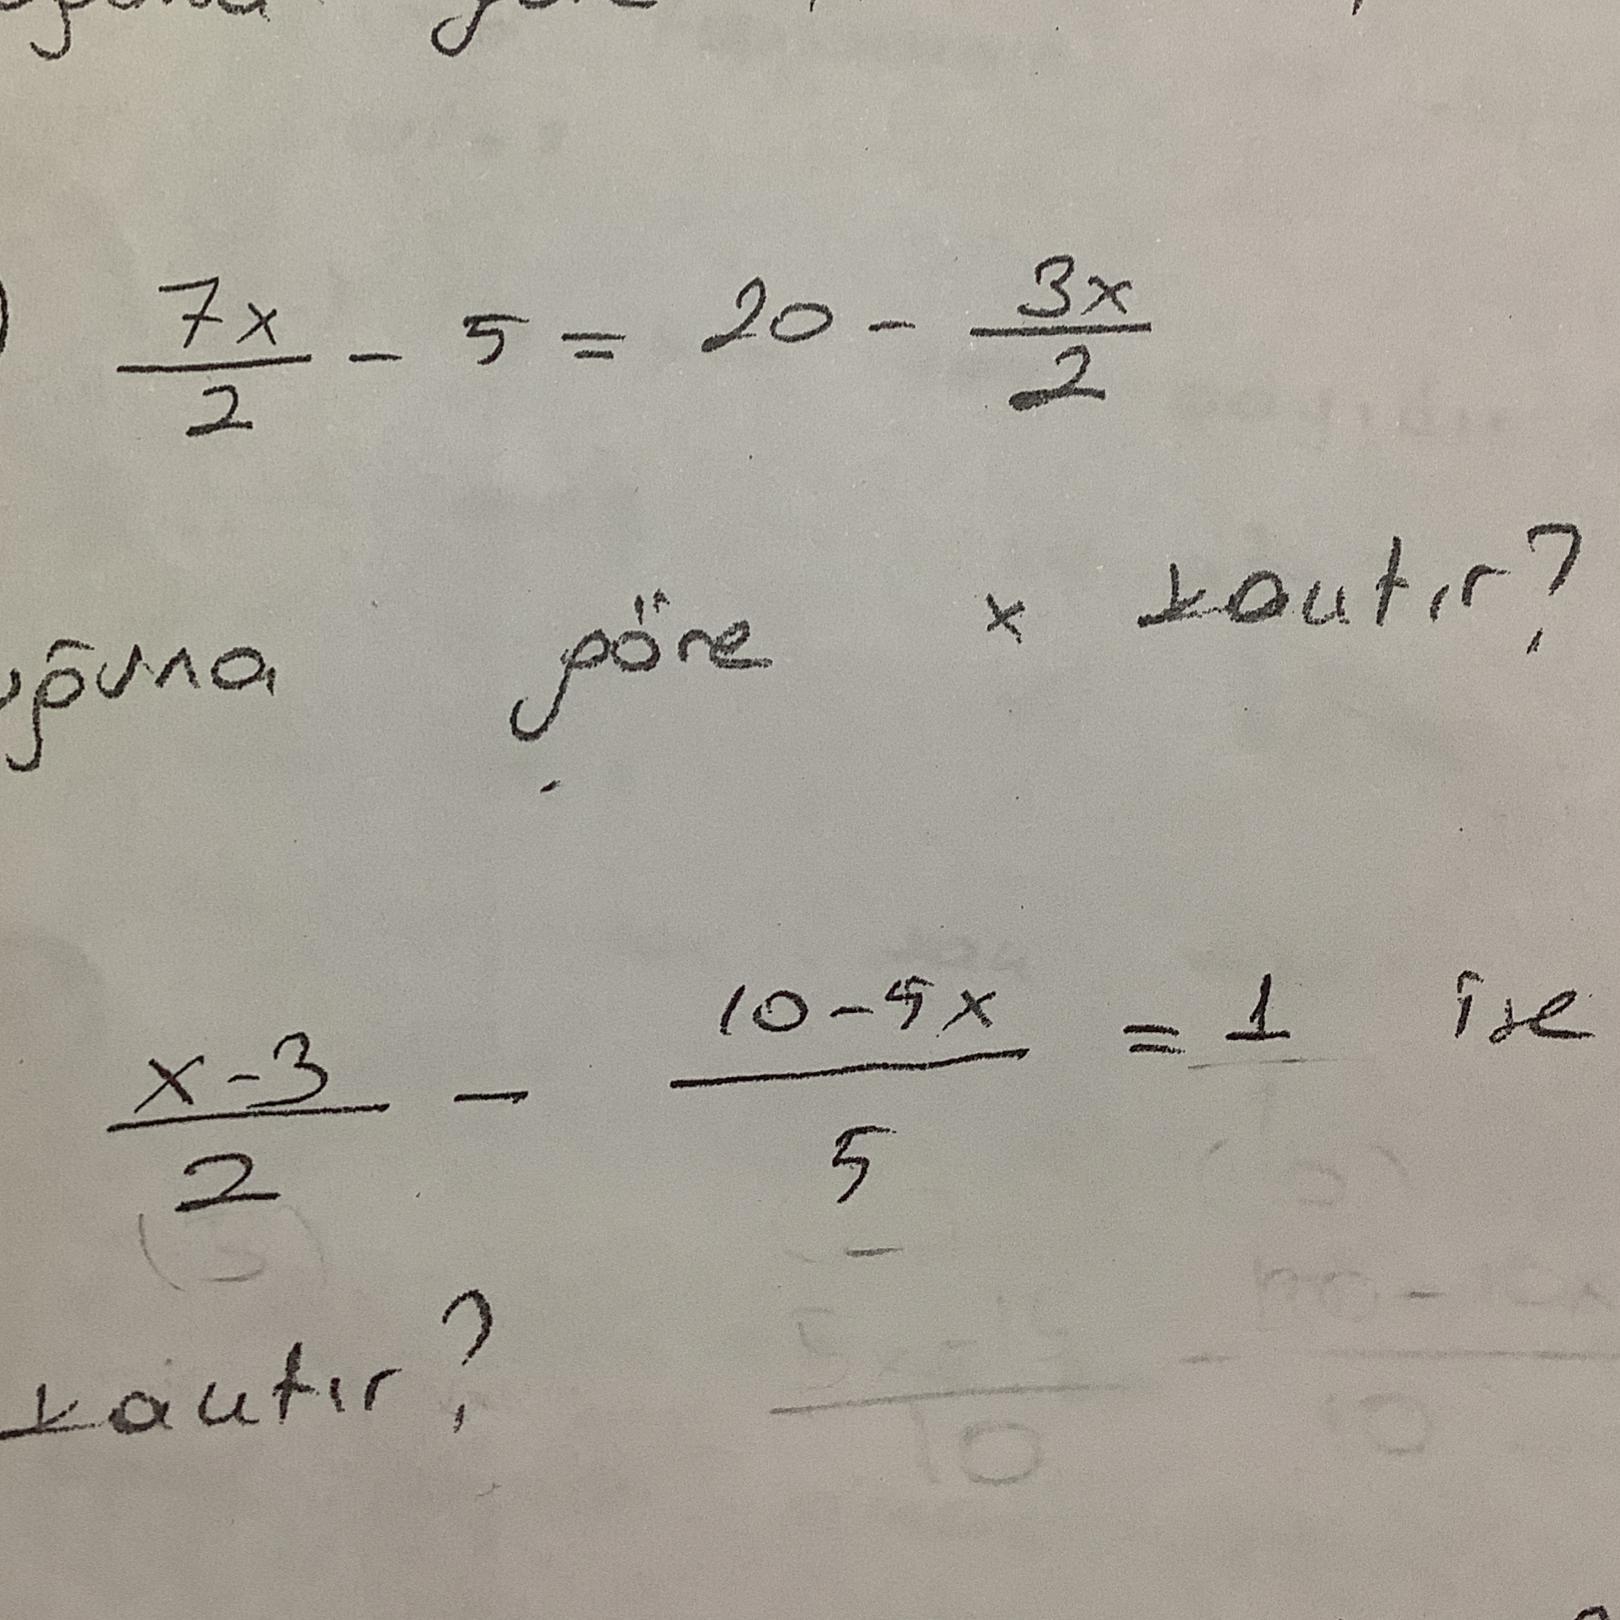 göre
) 7x/2 - 5 = 20 - 3x/2
göre x kaçtır?
x-3/2 - 10-5x/5 = 1 ise
kaçtır?